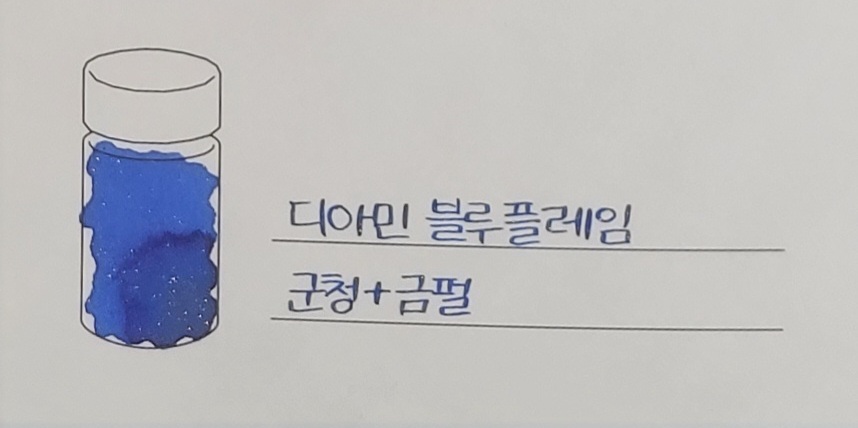 디아민 블루플레임
군청+금펄